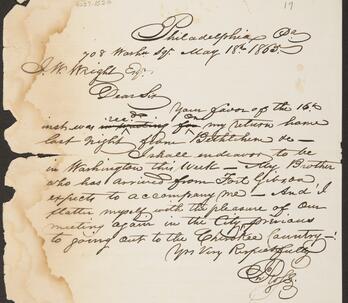 4037.1526
17
Philadelphia Pa
708 Washn Sqr. May 18th 1865.
J. W. Wright Esq.
Dear Sir
Your favor of the 16th
inst was recd on my return home
last night from Bethlehem &c
I shall endeavor to be
in Washington this week – My Brother
who has arrived from Fort Gibson
expects to accompany me – And I
flatter myself with the pleasure of our
meeting again in the City previous
to going out to the Cherokee Country –
Yrs Very Respectfully
Jno Ross